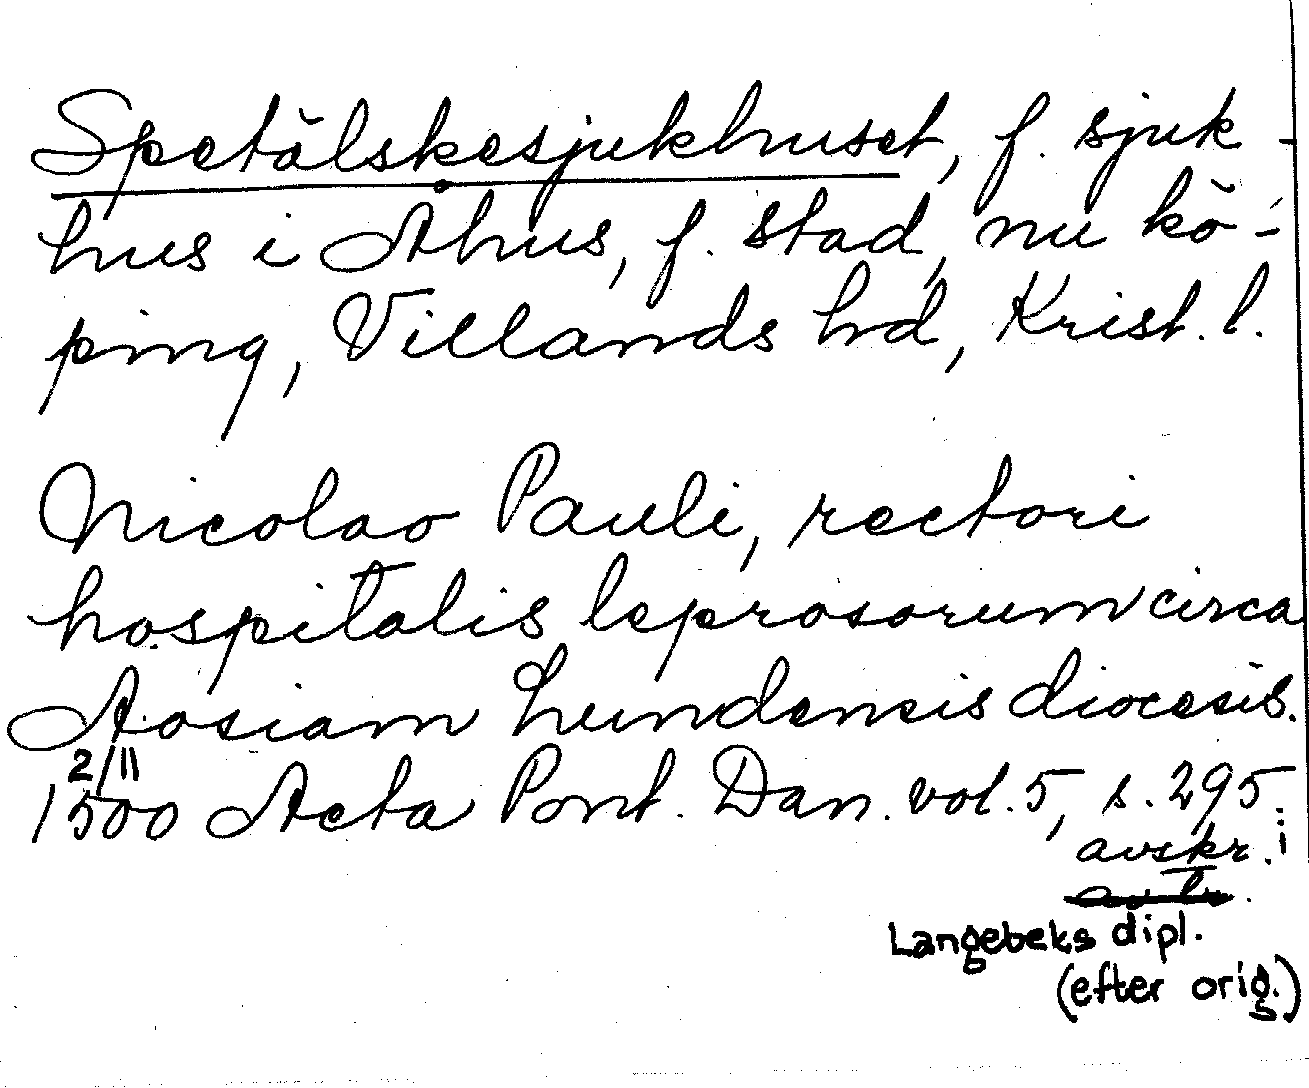 Spetälskesjukhuset, f. sjuk-
hus i Åhus, f. stad, nu kö-
ping, Villands hd, Krist. l.
Nicolao Pauli, rectori
hospitalis leprosorum circa
Aosiam Lundensis diocesis.
2/11
1500 Acta Pont. Dan. vol. 5, s. 295.
avskr. i
Langebeks dipl.
(efter orig.)